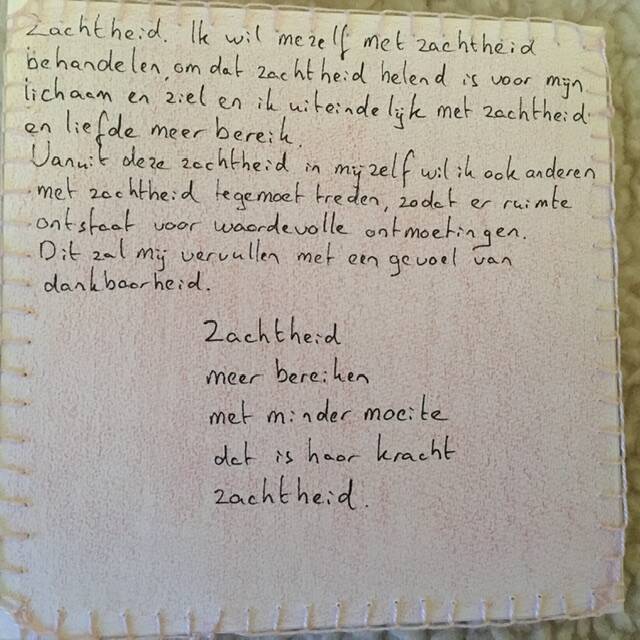 Zachtheid. Ik wil mezelf met zachtheid
behandelen, omdat zachtheid helend is voor mijn
lichaam en ziel en ik uiteindelijk met zachtheid
en liefde meer bereik.
Vanuit deze zachtheid in mijzelf wil ik ook anderen
met zachtheid tegemoet treden, zodat er ruimte
ontstaat voor waardevolle ontmoetingen.
Dit zal mij vervullen met een gevoel van
dankbaarheid.
Zachtheid
meer bereiken
met minder moeite
dat is haar kracht
zachtheid.